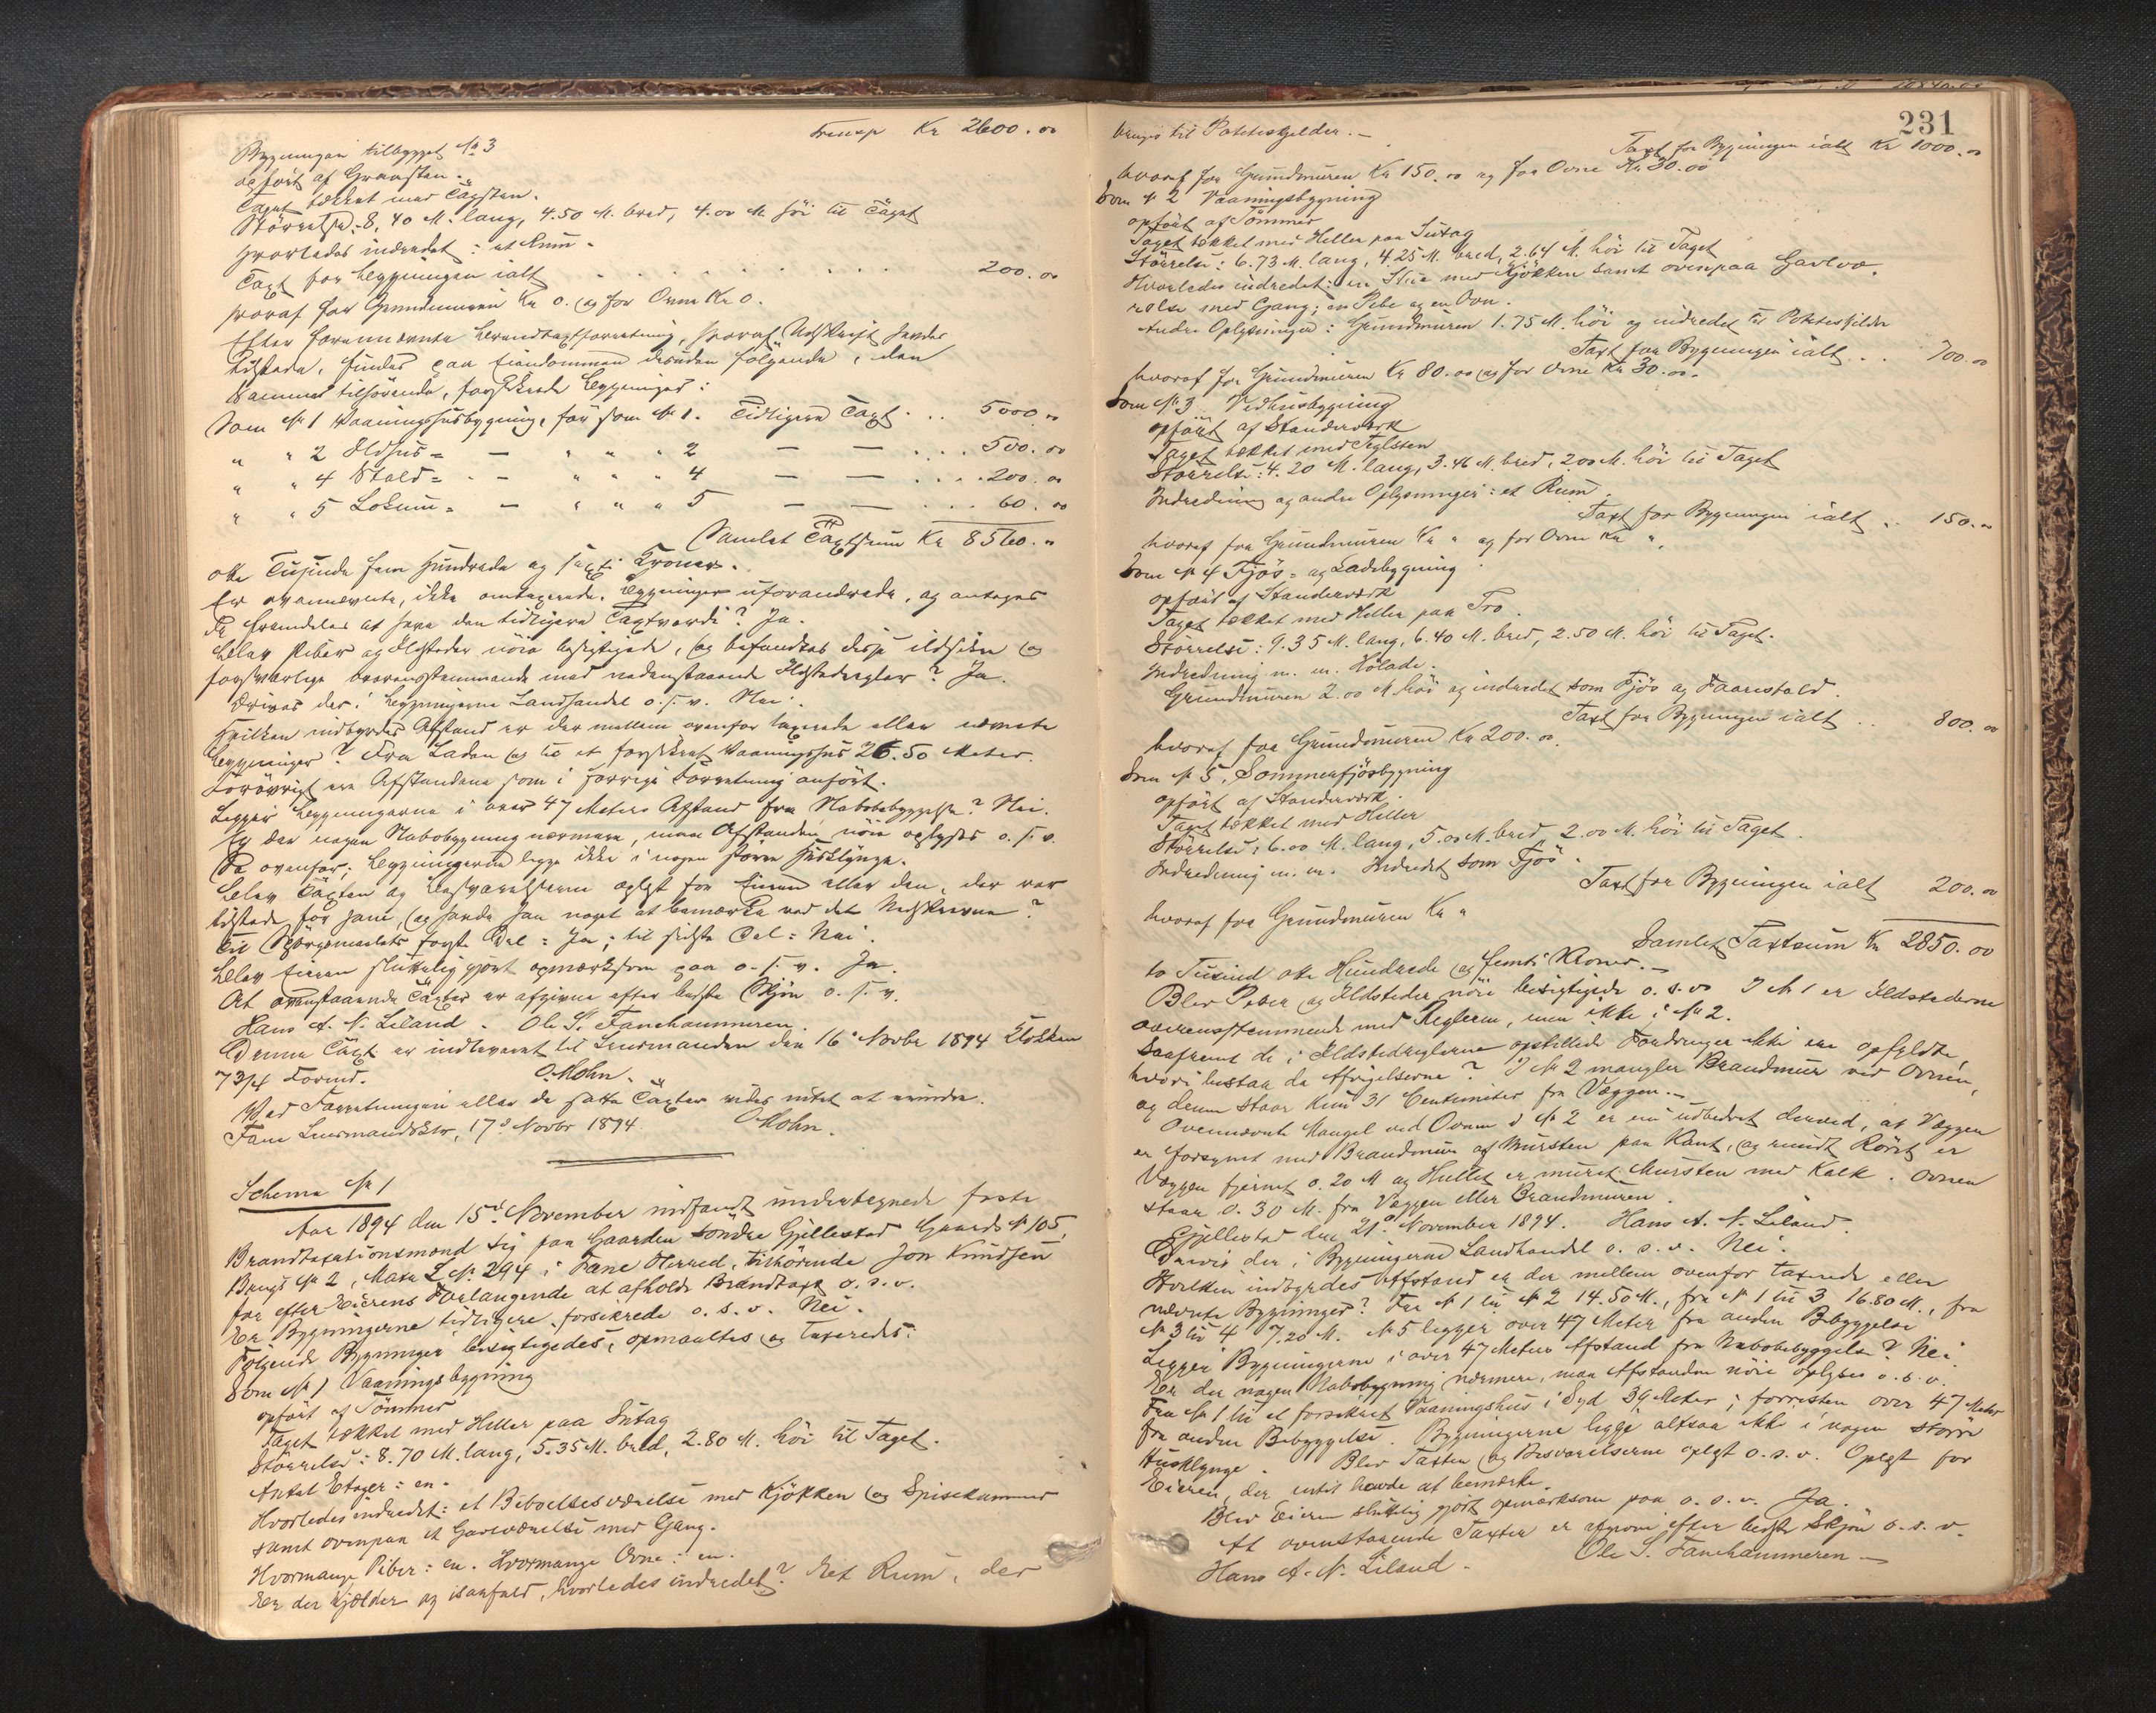 Transp Kr 2600.00
Bygningen tilbygget No 3
opført af Graasten.
Taget tækket med Tagsten.
Størrelse: 8,40 M. lang, 4.50 M. bred, 4.00 M. høi til Taget
Hvorledes indredet: et Rum.
Taxt for Bygningen ialt . . . . . . 200.00
hvoraf for Grundmuren Kr 0. og for Ovne Kr 0.
Efter forannævnte Brandtaxtforretning, hvoraf Udskrift havdes
tilstede, findes paa Eiendommen desuden følgende, den
Samme tilhørende, forsikrede Bygninger:
Som No 1 Vaaningshusbygning, før som No 1. Tidligere Taxt . . . 5000.00
" " 2 Ildhus= — " " " 2 — — . . . 500.00
" " 4 Stald= — " " " 4 — — . . . 200.00
" " 5 Lokum= — " " " 5 — — . . . 60.00
Samlet Taxtsum Kr 8560.00
otte Tusinde fem Hundrede og sexti Kroner.
Er ovennævnte, ikke omtaxerede, Bygninger uforandrede, og antages
de fremdeles at have den tidligere Taxtværdi? Ja.
Blev Piber og Ildsteder nøie besigtigede, og befandtes disse ildsikre og
forsvarlige overensstemmende med nedenstaaende Ildstedregler? Ja.
Drives der i Bygningerne Landhandel o. s. v. Nei.
Hvilken indbyrdes Afstand er der mellem ovenfor taxerede eller nævnte
Bygninger? Fra Laden og til et forsikret Vaaningshus 26.50 Meter.
Forøvrigt ere Afstandene som i forrige Forretning anført.
Ligger Bygningerne i over 47 Meters Afstand fra Nabobebyggelse? Nei.
Er der nogen Nabobygning nærmere, maa Afstanden nøie oplyses o. s. v.
Se ovenfor; Bygningerne ligge ikke i nogen større Husklynge.
Blev Taxten og Besvarelserne oplæst for Eieren eller den, der var
tilstede for ham, og havde han noget at bemærke ved det Nedskrevne?
Til Spørgsmaalets første Del: Ja; til sidste Del: Nei.
Blev Eieren sluttelig gjort opmærksom paa o. s. v. Ja.
At ovenstaaende Taxter er afgivne efter bedste Skjøn o. s. v.
Hans A. N. Liland. Ole S. Fanehammeren.
Denne Taxt er indleveret til Lensmanden den 16de Novbr 1894 Klokken
7 3/4 Formd. O. Mohn.
Ved Forretningen eller de satte Taxter vides intet at erindre.
Fane Lensmandsktr, 17de Novbr 1894 O. Mohn.
Schema No 1
Aar 1894 den 15de November indfandt undertegnede faste
Brandtaxationsmænd sig paa Gaarden søndre Gjellestad Gaards No 105,
Brugs No 2, Matr L. No 294 i Fane Herred, tilhørende Jon Knudsen
for efter Eierens Forlangende at afholde Brandtaxt o. s. v.
Er Bygningerne tidligere forsikrede o. s. v. Nei.
Følgende Bygninger besigtigedes, opmaaltes og taxeredes:
Som No 1 Vaaningsbygning
opført af Tømmer
Taget tækket med Heller paa Sutag
Størrelse: 8.70 M. lang, 5.35 M. bred, 2.80 M. høi til Taget.
Antal Etager: en.
Hvorledes indredet: et Beboelsesværelse med Kjøkken og Spisekammer
samt ovenpaa et Gavlværelse med Gang.
Hvormange Piber: en. Hvormange Ovne: en.
Er der Kjælder og isaafald, hvorledes indredet? Et Rum, der
231
bruges til Potteskjelder.—
Taxt for Bygningen ialt Kr 1000.00
hvoraf for Grundmuren Kr 150.00 og for Ovne Kr 30.00
Som No 2 Vaaningsbygning
opført af Tømmer
Taget tækket med Heller paa Sutag
Størrelse: 6.73 M. lang, 4.25 M. bred, 2.64 M. høi til Taget
Hvorledes indredet: en Stue med Kjøkken samt ovenpaa Gavlvæ-
relse med Gang; en Pibe og en Ovn.
Andre Oplysninger: Grundmuren 1.75 M. høi og indredet til Potteskjelder
Taxt for Bygningen ialt . . 700.00
hvoraf for Grundmuren Kr 80.00 og for Ovne Kr 30.00.
Som No 3 Vedhusbygning
opført af Standerværk
Taget tækket med Teglsten
Størrelse: 4.20 M. lang, 3.46 M. bred, 2.00 M. høi til Taget
Indredning og andre Oplysninger: et Rum.
Taxt for Bygningen ialt . . 150.00
hvoraf for Grundmuren Kr " og for Ovne Kr ".
Som No 4 Fjøs= og Ladebygning
opført af Standerværk
Taget tækket med Heller paa Tro.
Størrelse: 9.35 M. lang, 6.40 M. bred, 2.50 M. høi til Taget.
Indredning m. m. Hølade.
Grundmuren 2.00 M. høi og indredet som Fjøs og Faarestald.
Taxt for Bygningen ialt . . 800.00
hvoraf for Grundmuren Kr 200.00.
Som No 5, Sommerfjøsbygning
opført af Standerværk.
Taget tækket med Heller
Størrelse: 6.00 M. lang, 5.00 M. bred, 2.00 M. høi til Taget.
Indredning m. m. Indredet som Fjøs.
Taxt for Bygningen ialt 200.00
hvoraf for Grundmuren Kr "
Samlet Taxtsum Kr 2850.00
to Tusind otte Hundrede og femti Kroner.—
Blev Piber og Ildsteder nøie besigtigede o. s. v. I No 1 er Ildstederne
overensstemmende med Reglerne, men ikke i No 2.
Saafremt de i Ildstedreglerne opstillede Fordringer ikke ere opfyldte,
hvori bestaa da Afvigelserne? I No 2 mangler Brandmur ved Ovnen,
og denne staar kun 31 Centimeter fra Væggen.—
Ovennævnte Mangel ved Ovnen i No 2 er nu udbedret derved, at Væggen
er forsynet med Brandmur af Mursten paa Kant, og rundt Røret er
Væggen fjernet 0.20 M og Hullet er muret Mursten med Kalk. Ovnen
staar 0.30 M. fra Væggen eller Brandmuren.
Gjellestad den 21de November 1894. Hans A. N. Liland.
Drives der i Bygningerne Landhandel o. s. v. Nei.
Hvilken indbyrdes Afstand er der mellem ovenfor taxerede eller
nævnte Bygninger? Fra No 1 til No 2 14.50 M., fra No 1 til 3 16.80 M., fra
No 3 til 4 7.20 M. No 5 ligger over 47 Meter fra anden Bebyggelse
Ligger Bygningerne i over 47 Meters Afstand fra Nabobebyggelse? Nei.
Er der nogen Nabobygning nærmere, maa Afstanden nøie oplyses o. s. v.
Fra No 1 til et forsikret Vaaningshus i Syd 39 Meter; forresten over 47 Meter
fra anden Bebyggelse. Bygningerne ligge altsaa ikke i nogen større
Husklynge. Blev Taxten og Besvarelserne oplæst o. s. v. Oplæst for
Eieren, der intet havde at bemærke.
Blev Eieren sluttelig gjort opmærksom paa o. s. v. Ja.
At ovenstaaende Taxter er afgivne efter bedste Skjøn o. s. v.
Hans A. N. Liland. Ole S. Fanehammeren—